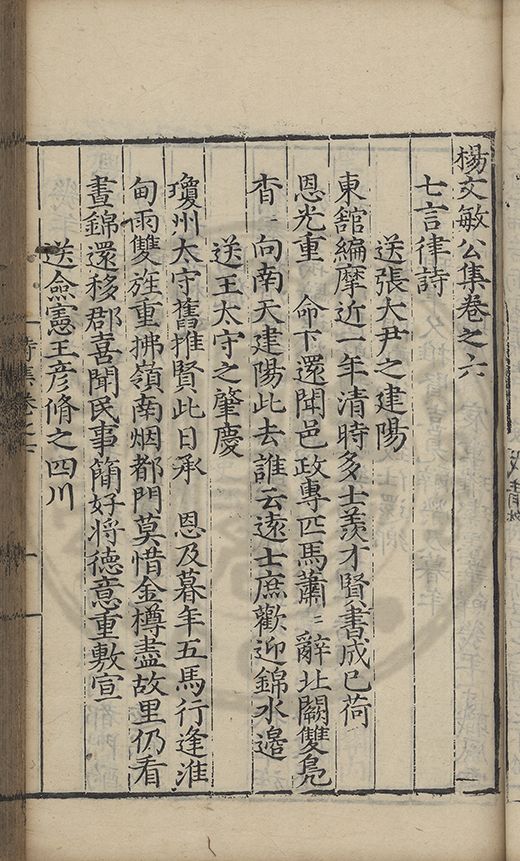 楊文敏公集卷之六
七言律詩
送張大尹之建陽
東舘編摩近一年清時多士羨才賢書成已荷
恩光重　命下還聞邑政專匹馬蕭〻辭北闕雙鳧
杳〻向南天建陽此去誰云逺士庶歡迎錦水邊
送王太守之肇慶
瓊州太守舊推賢此日承　恩及暮年五馬行逢淮
甸雨雙旌重拂嶺南烟都門莫惜金樽盡故里仍看
晝錦還移郡喜聞民事簡好將德意重敷宣
送僉憲王彦脩之四川